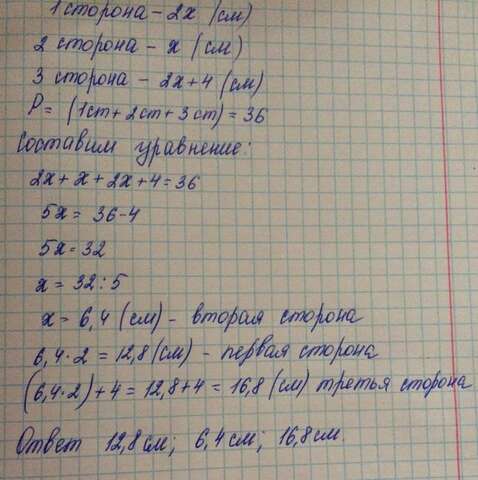 1 сторона - 2x (см)
2 сторона - x (см)
3 сторона - 2x+4 (см)
P = (1ст + 2ст + 3ст) = 36
Составим уравнение:
2x + x + 2x + 4 = 36
5x = 36-4
5x = 32
x = 32 : 5
x = 6,4 (см) - вторая сторона
6,4 · 2 = 12,8 (см) - первая сторона
(6,4·2)+4 = 12,8+4 = 16,8 (см) третья сторона
Ответ 12,8 см; 6,4 см; 16,8 см.